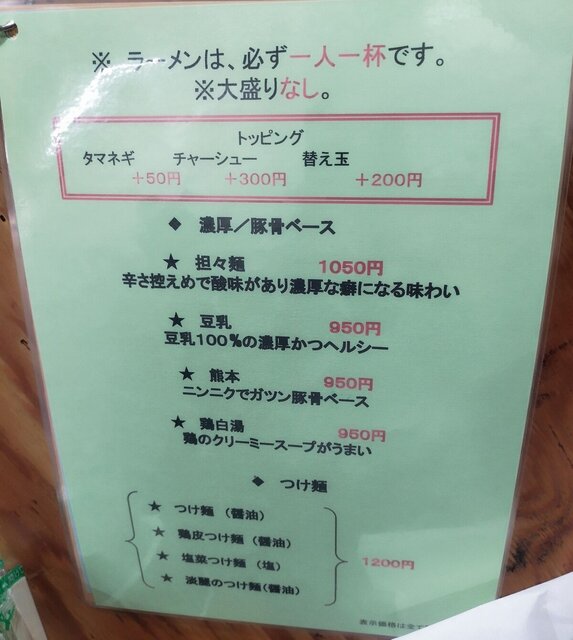 ※ ラーメンは、必ず一人一杯です。
※大盛りなし。
トッピング
タマネギ チャーシュー 替え玉
＋50円 ＋300円 ＋200円
◆ 濃厚／豚骨ベース
★ 担々麺 1050円
辛さ控えめで酸味があり濃厚な癖になる味わい
★ 豆乳 950円
豆乳100％の濃厚かつヘルシー
★ 熊本 950円
ニンニクでガツン豚骨ベース
★ 鶏白湯 950円
鶏のクリーミースープがうまい
◆ つけ麺
★ つけ麺（醤油）
★ 鶏皮つけ麺（醤油）
★ 塩菜つけ麺（塩） 1200円
★ 淡麗のつけ麺（醤油）
表示価格は全て